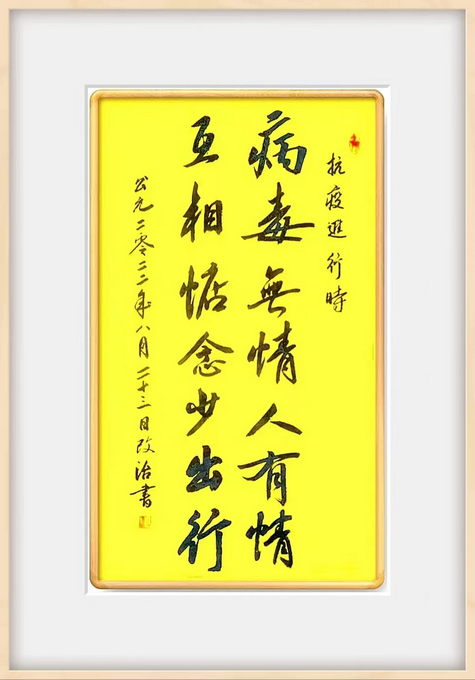 抗疫進行時
病毒無情人有情
互相惦念少出行
公元二零二二年八月二十三日治書